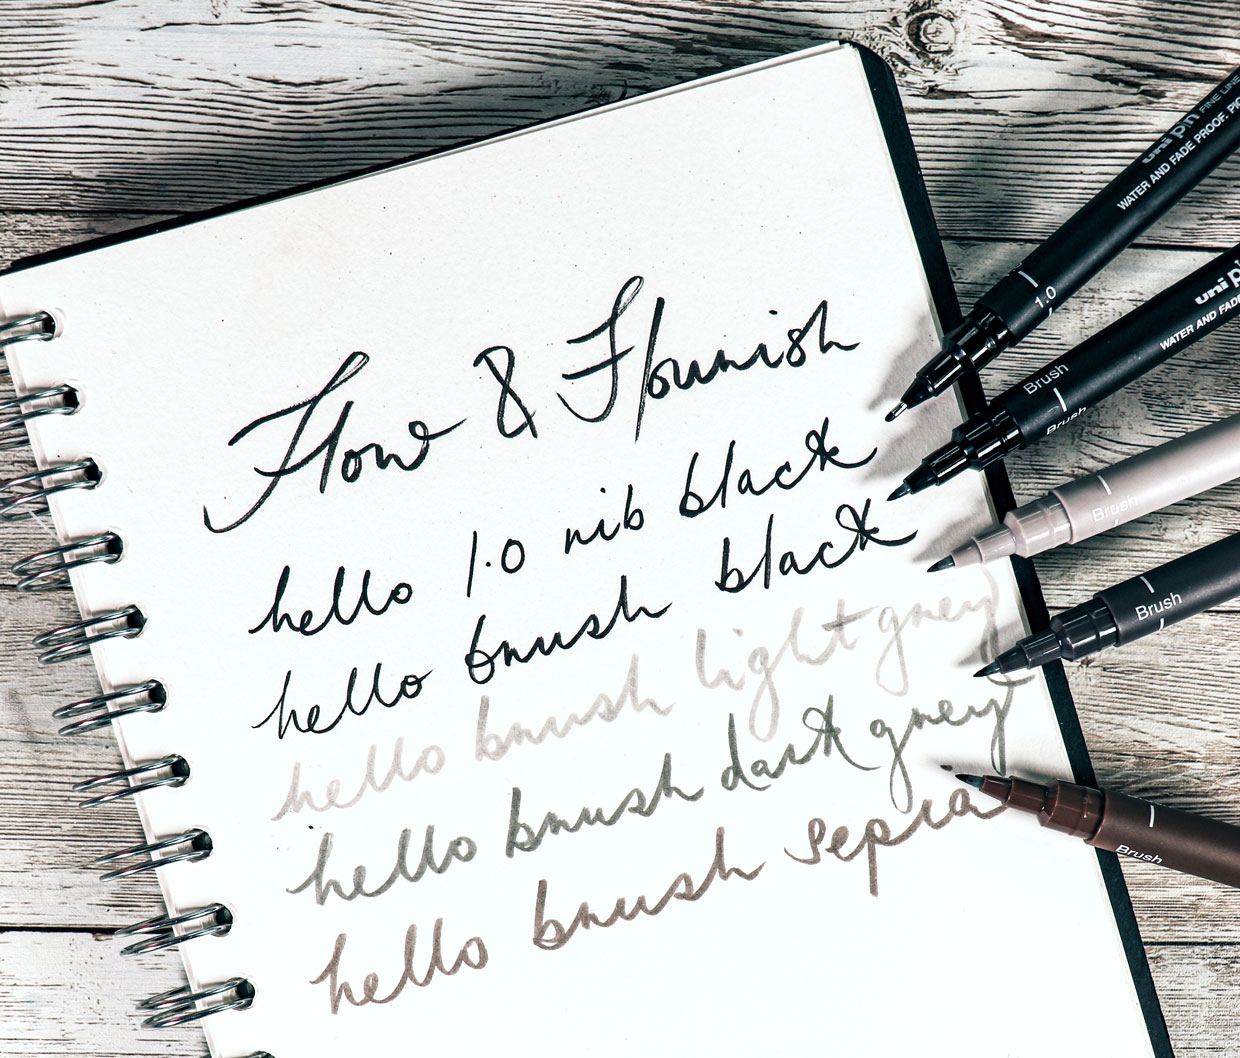 Flow & Flourish
hello 1.0 nib black
hello brush black
hello brush light grey
hello brush dark grey
hello brush sepia
uni pin FINE LINE
WATER AND FADE PROOF.
1.0
uni pin
WATER AND FADE
Brush
Brush
Brush
Brush
Brush